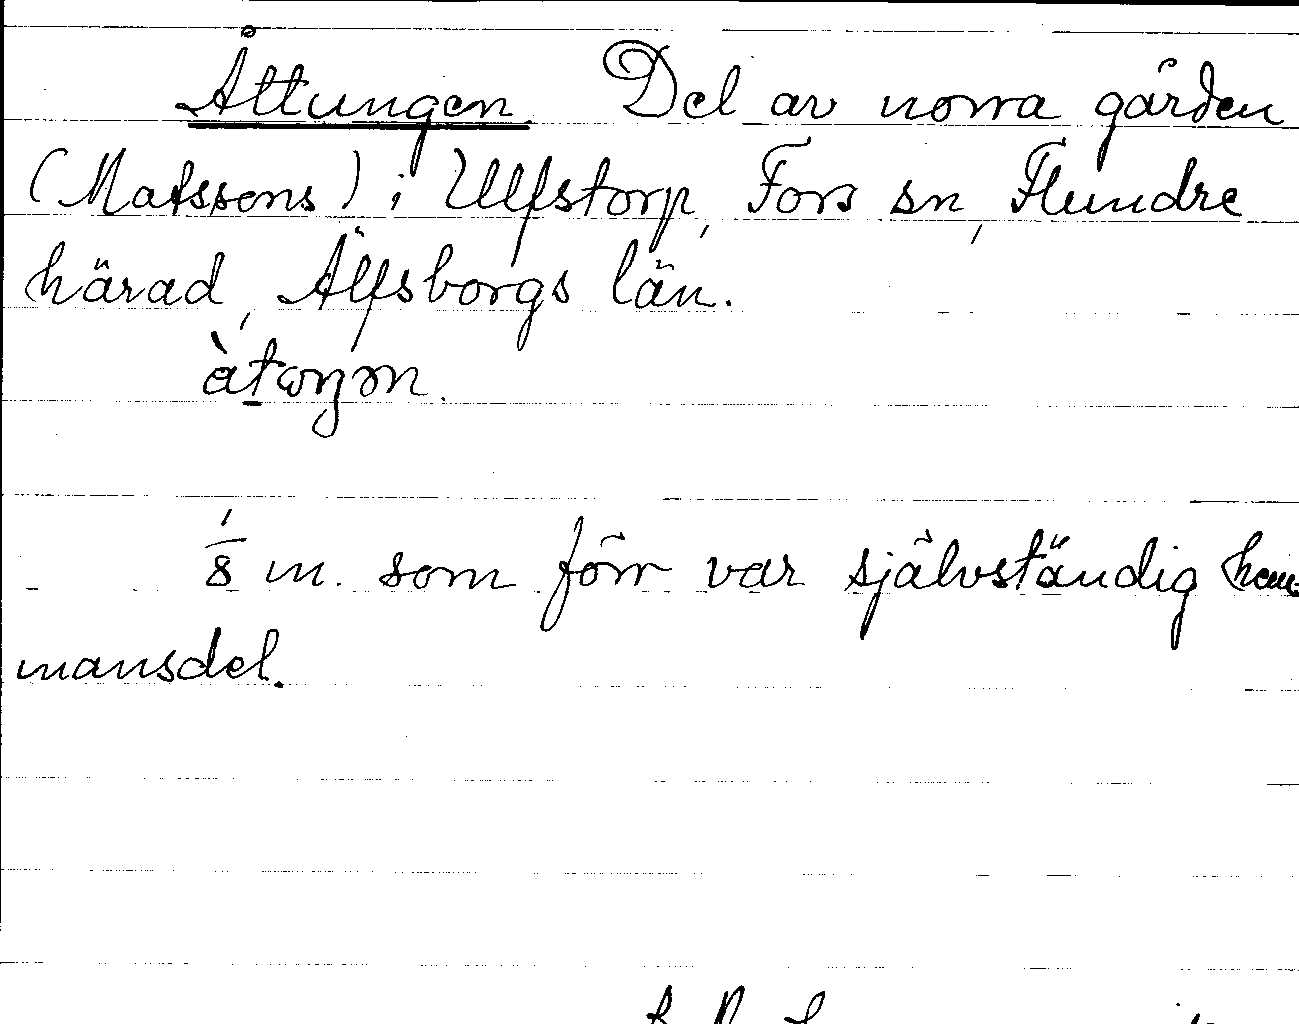 Åttungen. Del av norra gården
(Matssons) i Ulfstorp, Fors sn, Flundre
härad, Älfsborgs län.
1/8 m. som förr var självständig hem-
mansdel.